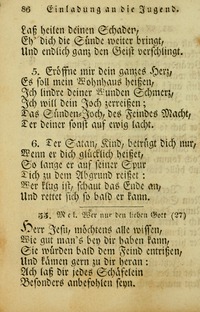 86 Einladung an die Jugend.
Laß heilen deinen Schaden,
Eh' dich die Sünde weiter bringt,
Und endlich ganz den Geist verschlingt.
5. Eröffne mir dein ganzes Herz,
Es soll mein Wohnhaus heißen,
Ich lindre deiner Wunden Schmerz,
Ich will dein Joch zerreißen;
Das Sünden-Joch, des Feindes Macht,
Der deiner sonst auf ewig lacht.
6. Der Satan, Kind, betrügt dich nur,
Wenn er dich glücklich heißet,
So lange er auf seiner Spur
Dich zu dem Abgrund reißet:
Wer klug ist, schaut das Ende an,
Und rettet sich so bald er kann.
Mel. Wer nur den lieben Gott (27)
Herr Jesu, möchtens alle wissen,
Wie gut man's bey dir haben kann,
Sie würden bald dem Feind entrissen,
Und kämen gern zu dir heran:
Ach laß dir jedes Schäfelein
Besonders anbefohlen seyn.